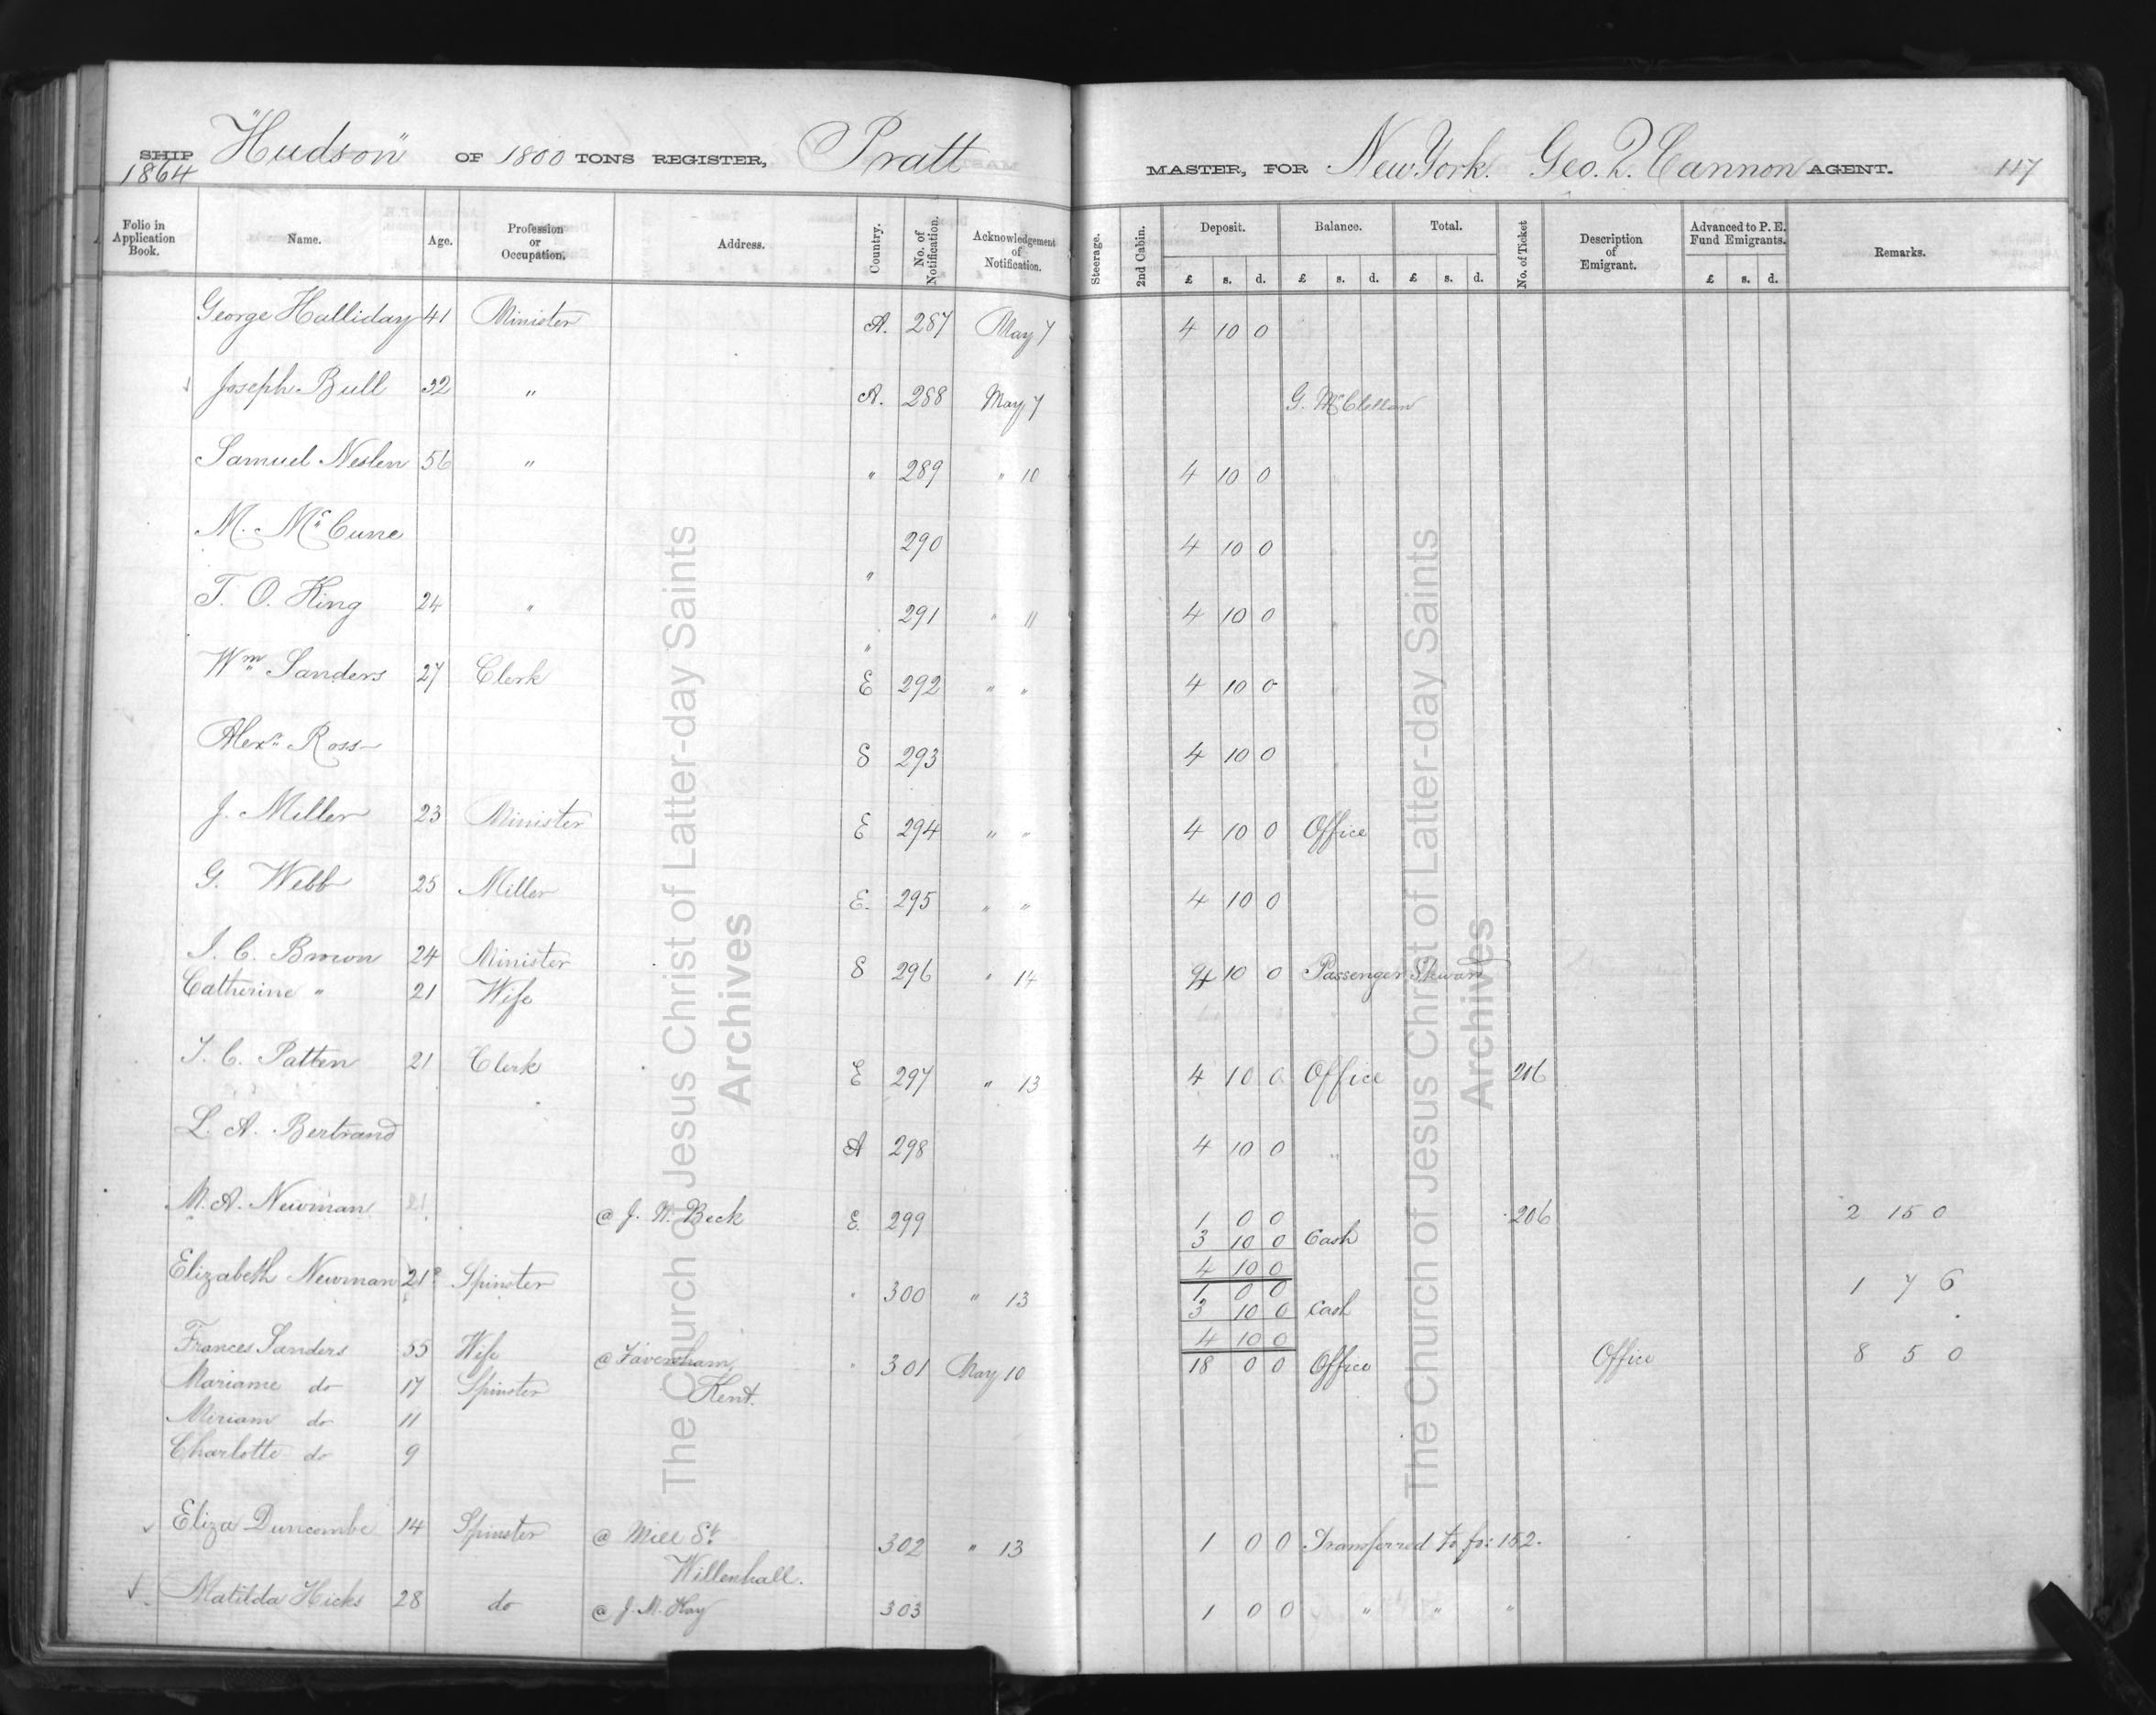 SHIP "Hudson" OF 1800 TONS REGISTER, Pratt MASTER, FOR New York. Geo. Q. Cannon AGENT. 117
1864
Folio in Application Book. Name. Age. Profession or Occupation. Address. Country. No. of Notification. Acknowledgement of Notification. Steerage. 2nd Cabin. Deposit. Balance. Total. No. of Ticket Description of Emigrant. Advanced to P. E. Fund Emigrants. Remarks.
£ s. d. £ s. d. £ s. d. £ s. d.
George Halliday 41 Minister A. 287 May 7 4 10 0
Joseph Bull 32 " A. 288 May 7 G. McClellan
Samuel Neslen 56 " " 289 " 10 4 10 0
M. McCune " 290 4 10 0
T. O. King 24 " " 291 " 11 4 10 0
Wm Sanders 27 Clerk E 292 " " 4 10 0
Alexr Ross S 293 4 10 0
J. Miller 23 Minister E 294 " " 4 10 0 Office
G. Webb 25 Miller E. 295 " " 4 10 0
J. C. Brown 24 Minister S 296 " 14 10 0 Passenger
Catherine " 21 Wife
T. C. Patten 21 Clerk E 297 " 13 4 10 0 Office 216
L. A. Bertrand A 298 4 10 0 "
M. A. Newman 21 @ J. W. Beck E. 299 1 0 0 206 2 15 0
3 10 0 Cash
4 10 0
Elizabeth Newman 21 Spinster " 300 " 13 1 0 0 1 7 6
3 10 0 Cash
4 10 0
Frances Sanders 55 Wife @ Faversham, " 301 May 10 18 0 0 Office Office 8 5 0
Mariame do 17 Spinster Kent.
Miriam do 11
Charlotte do 9
Eliza Duncombe 14 Spinster @ Mill St 302 " 13 1 0 0 Transferred to fo: 152.
Willenhall.
Matilda Hicks 28 do @ J. M. Kay 303 1 0 0 " " "
The Church of Jesus Christ of Latter-day Saints
Archives
The Church of Jesus Christ of Latter-day Saints
Archives